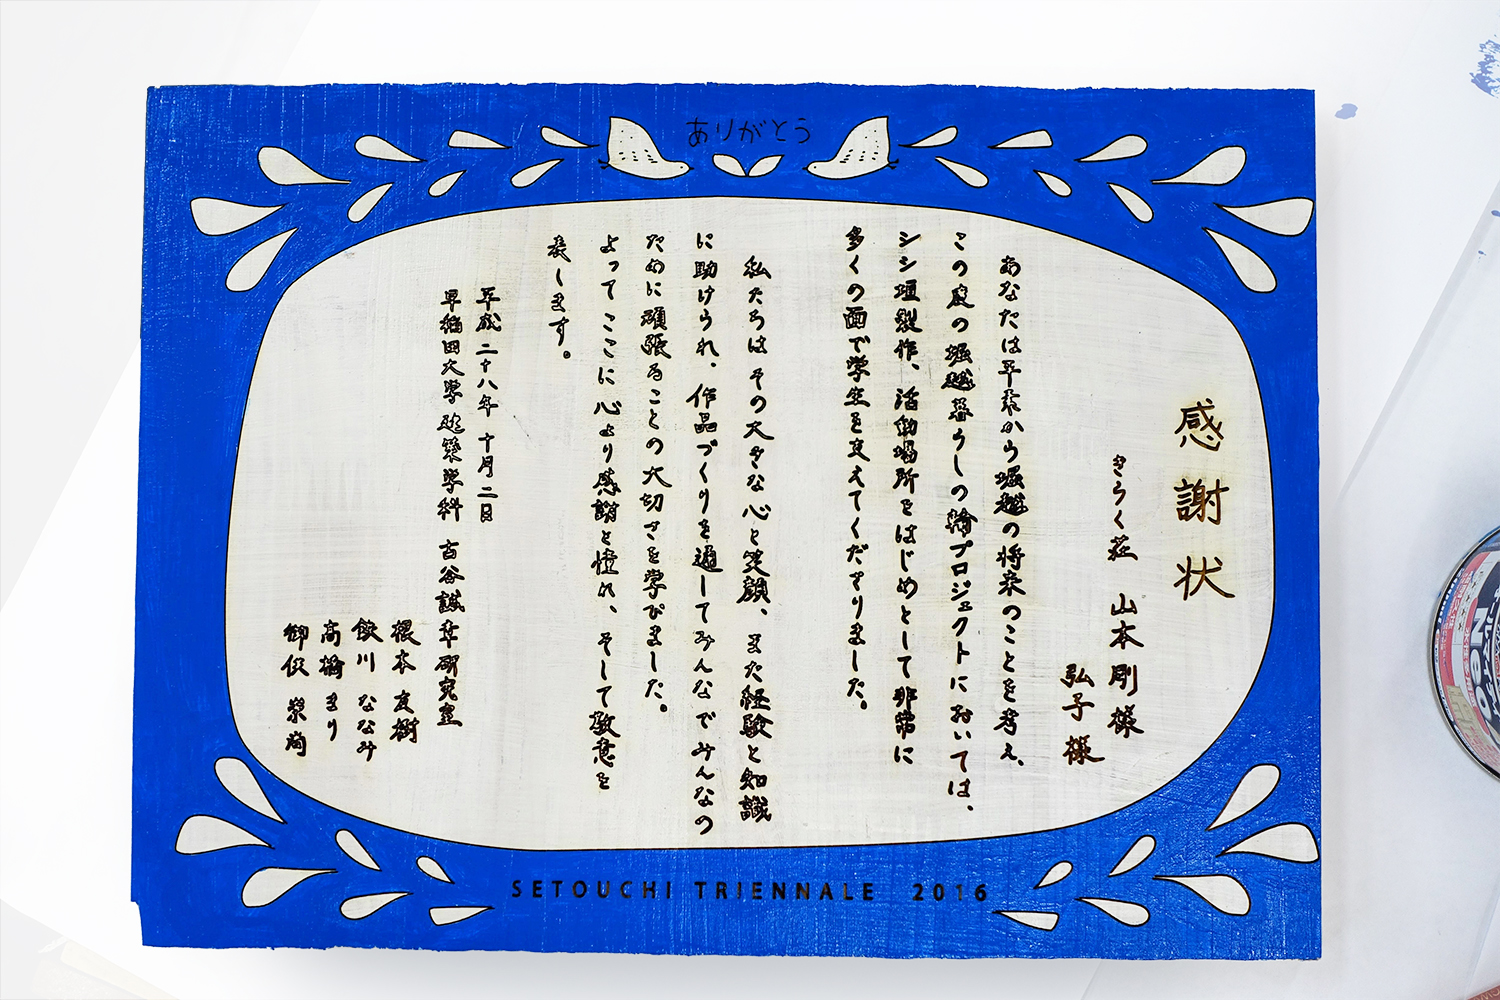 ありがとう
感謝状
きらく荘 山本剛様
弘子様
あなたは平素から堀越の将来のことを考え、
この度の堀越暮らしの輪プロジェクトにおいては、
シシ垣製作、活動場所をはじめとして非常に
多くの面で学生を支えてくださりました。
私たちはその大きな心と笑顔、また経験と知識
に助けられ、作品づくりを通してみんなでみんなの
ために頑張ることの大切さを学びました。
よってここに心より感謝と憧れ、そして敬意を
表します。
平成二十八年 十月二日
早稲田大学建築学科 古谷誠章研究室
根本友樹
鉄川ななみ
高橋まり
御供崇尚
SETOUCHI TRIENNALE 2016